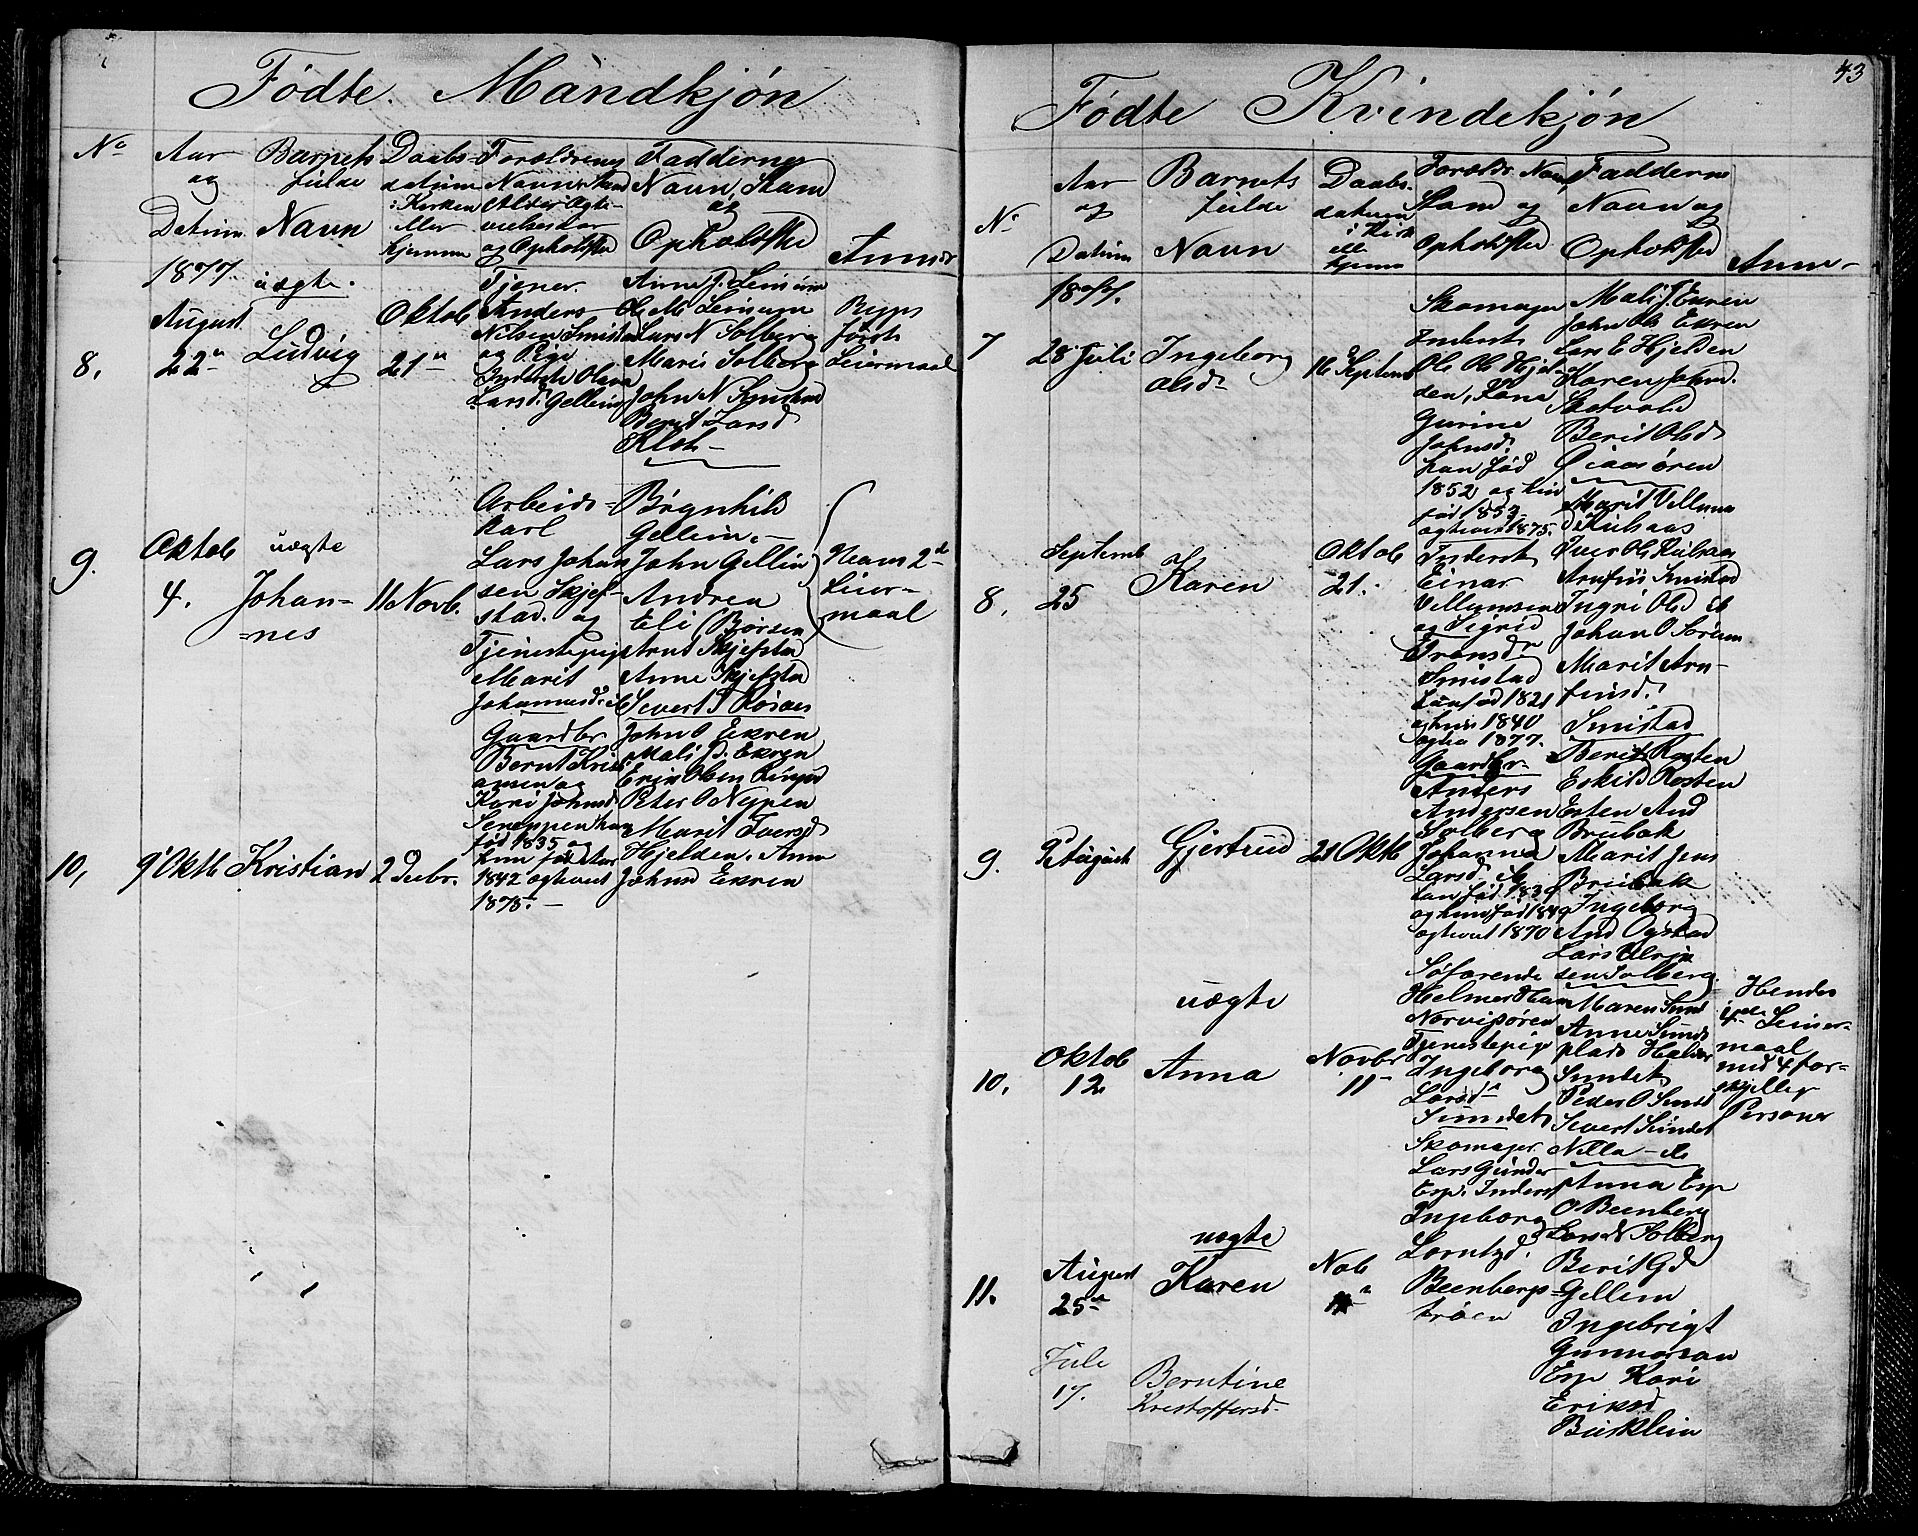 Födte. Mandkjön
No
Aar
og
Datum
Barnets
fulde
Navn
Daabs-
datum
i Kirken
eller
hjemme
Forældrenes
Navn Stand
Alder Ægte-
vielsesaar
og Opholdsted
Faddernes
Navn, Stand
og
Opholdsted
Anm
1877.
8.
August
22
uægte.
Ludvig
Oktob
21
Tjener
Anders
Nilsen Smistad
og Pige
Inderste Olava
Larsd. Gellein
Anne J. Leinum
O. M. Leinum
Lars N Solberg
Marit Solberg
John N Smistad
Berit Larsd
Klet
Begges
første
Leiermaal
9.
Oktob
4.
uægte
Johan-
=nes
11 Novb.
Arbeids-
karl
Lars Johan
sen Skjef-
stad. og
Tjenestepige
Marit
Johannesd.
Brynhild
Gellein.
John Gellin
Andrea
Eli Börsen
Arnt Skjefsta
Anne Skjefsta
Sivert
Hans 2d
Leier-
maal
10,
9' Oktb
Kristian
2 Decbr.
Gaardbr
Bernt Kristi
ansen og
Kari Johnsd
han
föd 1835 og
hun föd
1842 ægteviet
1875.
John O Ekren
Mali J. Ekren
Erik Olsen
Peter O Neypen
Marit Iversd
Hjelden. Anne
Johnsd Ekren
43
Födte Kvindekjön
No
Aar
og
Datum
Barnets
fulde
Navn
Daabs-
datum
i Kirk
ell
hjeme
Foreldr Navn
Stand og
Opholdsted
Faddernes
Navn og
Opholdsted
Anm-
1877.
7
28 Juli
Ingeborg
Olsd
16 Septemb
Skomager
Inderst
Ole Ols Hjel-
den, Kone
Gurine
Johnsd.
han föd
1852 og hun
föd 1853
ægteviet 1875.
Mali J. Ekren
John Ols Ekren
Lars E Hjelden
Karen Johnsd.
Berit Olsd
Öiaasören
8.
Septemb
25
Karen
Oktob
21.
Inderst
Einar
Villumsen
og Sigrid
Smistad
han föd 1821
og hun 1840
ægtev 1877.
Marit Villums
d Kuhaas
Iver Ols Kuhaas
Arnfin Smistad
Ingri Olsd ib
Johan O Sörum
Marit Arn-
finsd.
Smistad
9.
August
Gjertrud
21 Oktb
Gaardbr
Anders
Andersen
Solberg
Johanna
Larsd
han föd 1839
og hun föd 1849
ægteviet 1870
Berit Rosten
Eskild Rosten
Esten And
Brubak
Marit Jens
Brubak
Ingeborg
And Ögstad
Lars
sen Solberg
10.
Oktob
12
uægte
Anna
Novbr
11
Söfarende
Helmer
Tjenestepige
Ingeborg
Larsd
Sundet
Maren Sund
Anne Sunds
plads Halvor
Sundet
Peder O Sund
Sivert Sundet
Nilla
Hendes
4de Leier-
maal
med 4 for-
skjellig
Personer
11.
August
25
uægte
Karen
Nob
Skomager
Lars Gunder
Esp. Inders
Ingeborg
Larntzd.
Beenbergs-
tröen
Anna Esp
O Beenberg
Lars N Solberg
Berit Gd
Gellein
Ingebrigt
Gunnarsan
Esp Kari
Eriksd
Busklein
Jule
17.
Berntine
Kristoffersd